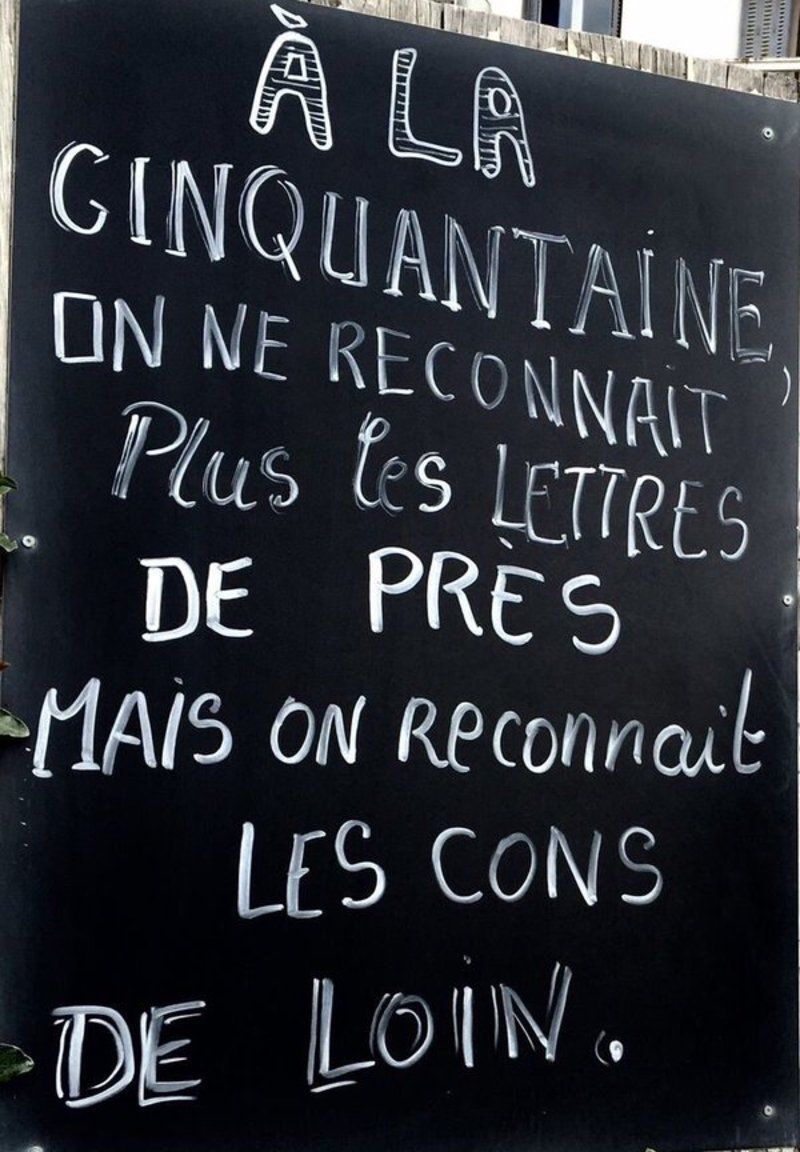 À LA
CINQUANTAINE,
ON NE RECONNAIT
Plus les LETTRES
DE PRÈS
MAIS ON Reconnait
LES CONS
DE LOIN.